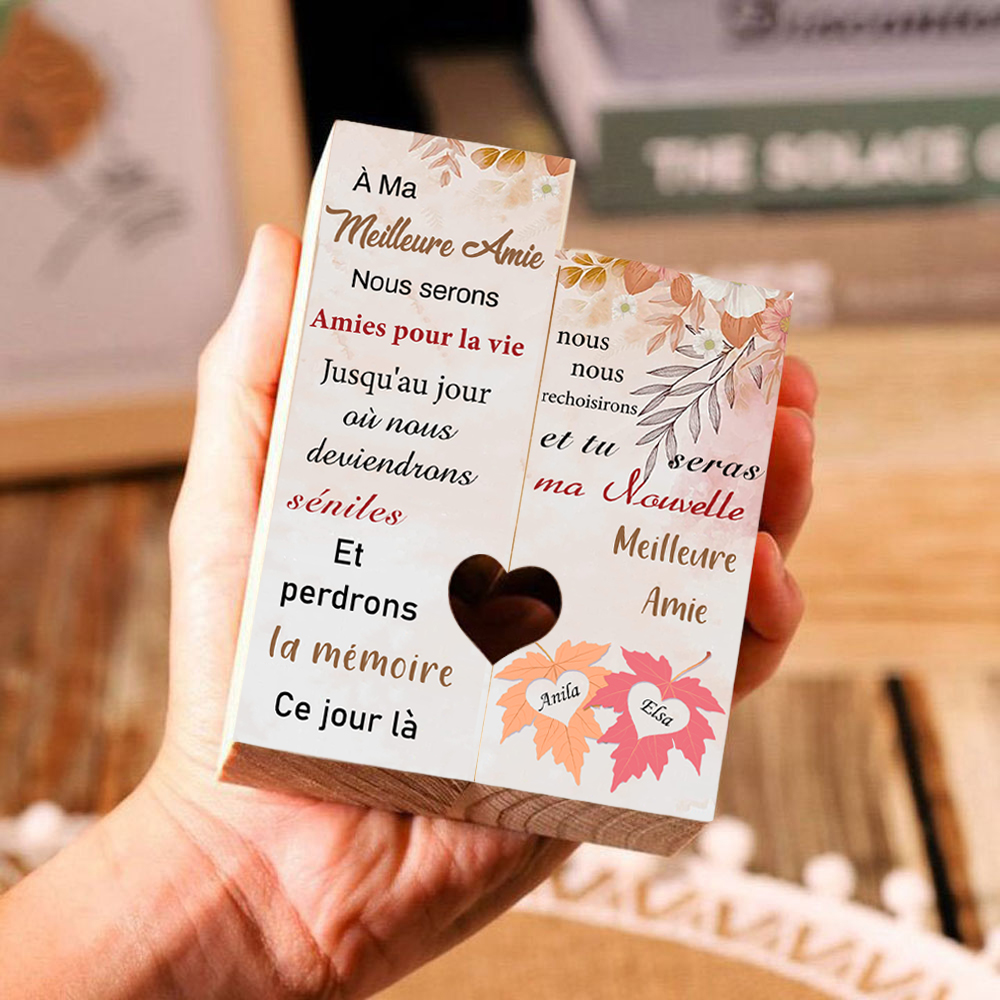 À Ma
Meilleure Amie
Nous serons
Amies pour la vie
Jusqu'au jour
où nous
deviendrons
séniles
Et
perdrons
la mémoire
Ce jour là
nous
nous
rechoisirons
et tu seras
ma Nouvelle
Meilleure
Amie
Anila
Elsa
THE SOLACE